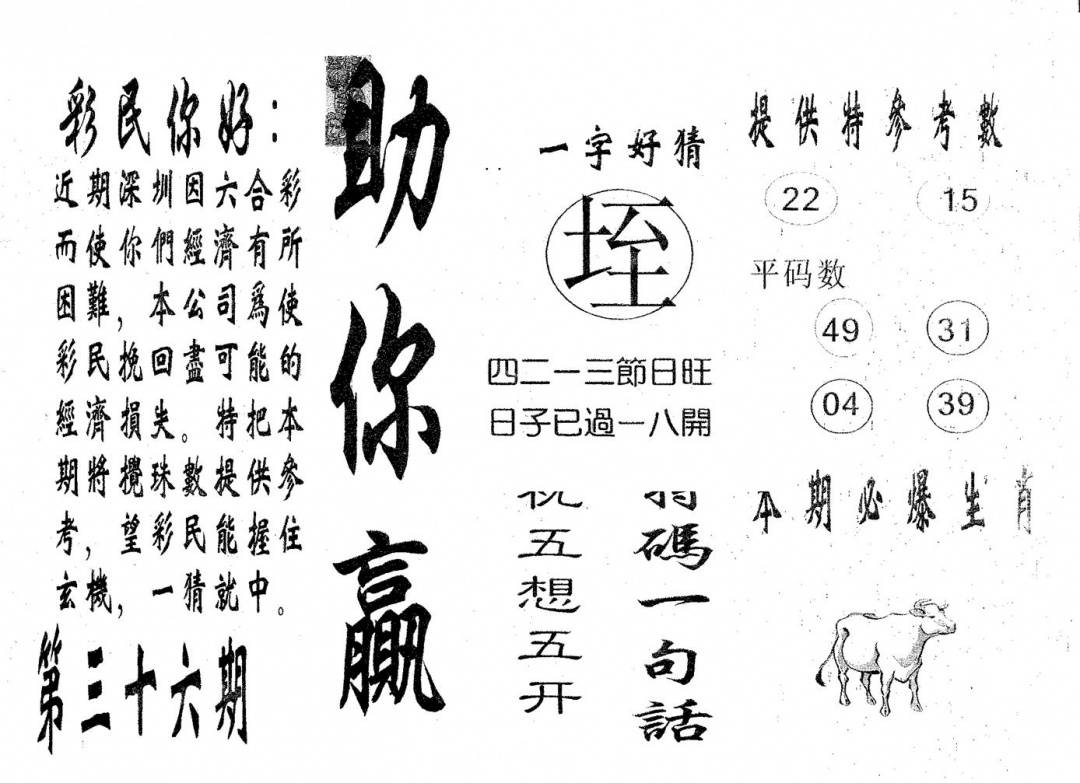 彩民你好：
近期深圳因六合彩
而使你們經濟有所
困難，本公司爲使
彩民挽回盡可能的
經濟損失。特把本
期將攪珠數提供參
考，望彩民能握住
玄機，一猜就中。
第三十六期
助你贏
一字好猜
垤
四二一三節日旺
日子已過一八開
特碼一句話
五想五开
提供特參考數
22 15
平码数
49 31
04 39
本期必爆生肖